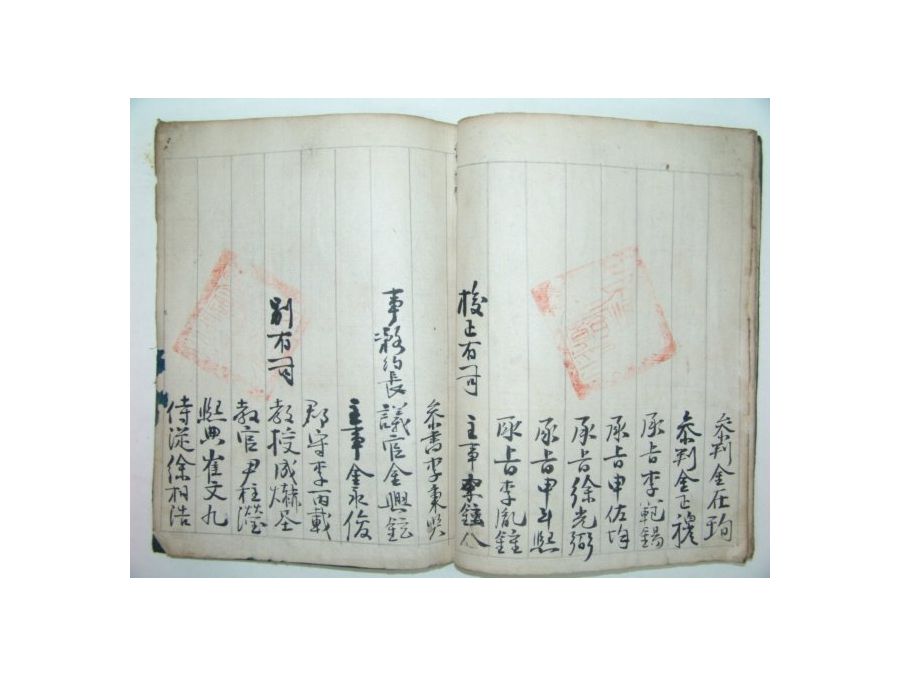 參判金在珣
參判金正
承旨李範錫
承旨申佐均
承旨徐光弼
承旨申斗熙
承旨李胤鍾
校正有司 主事
參書李秉熙
事務約長 議官金興鉉
主事金永俊
郡守李丙載
別有司 教授成爀圣
教官尹柱瀅
熙典崔文九
侍從徐相浩